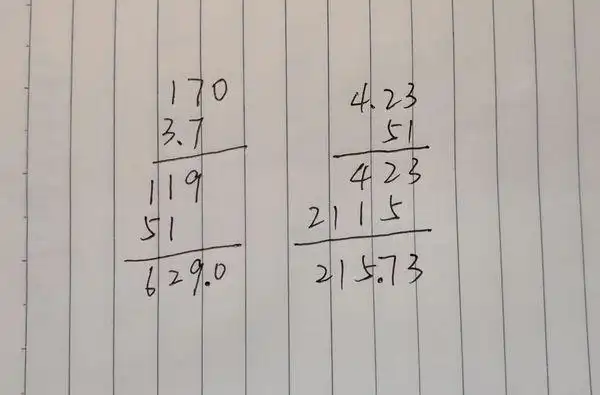 170
3.7
119
51
629.0
4.23
51
423
2115
215.73